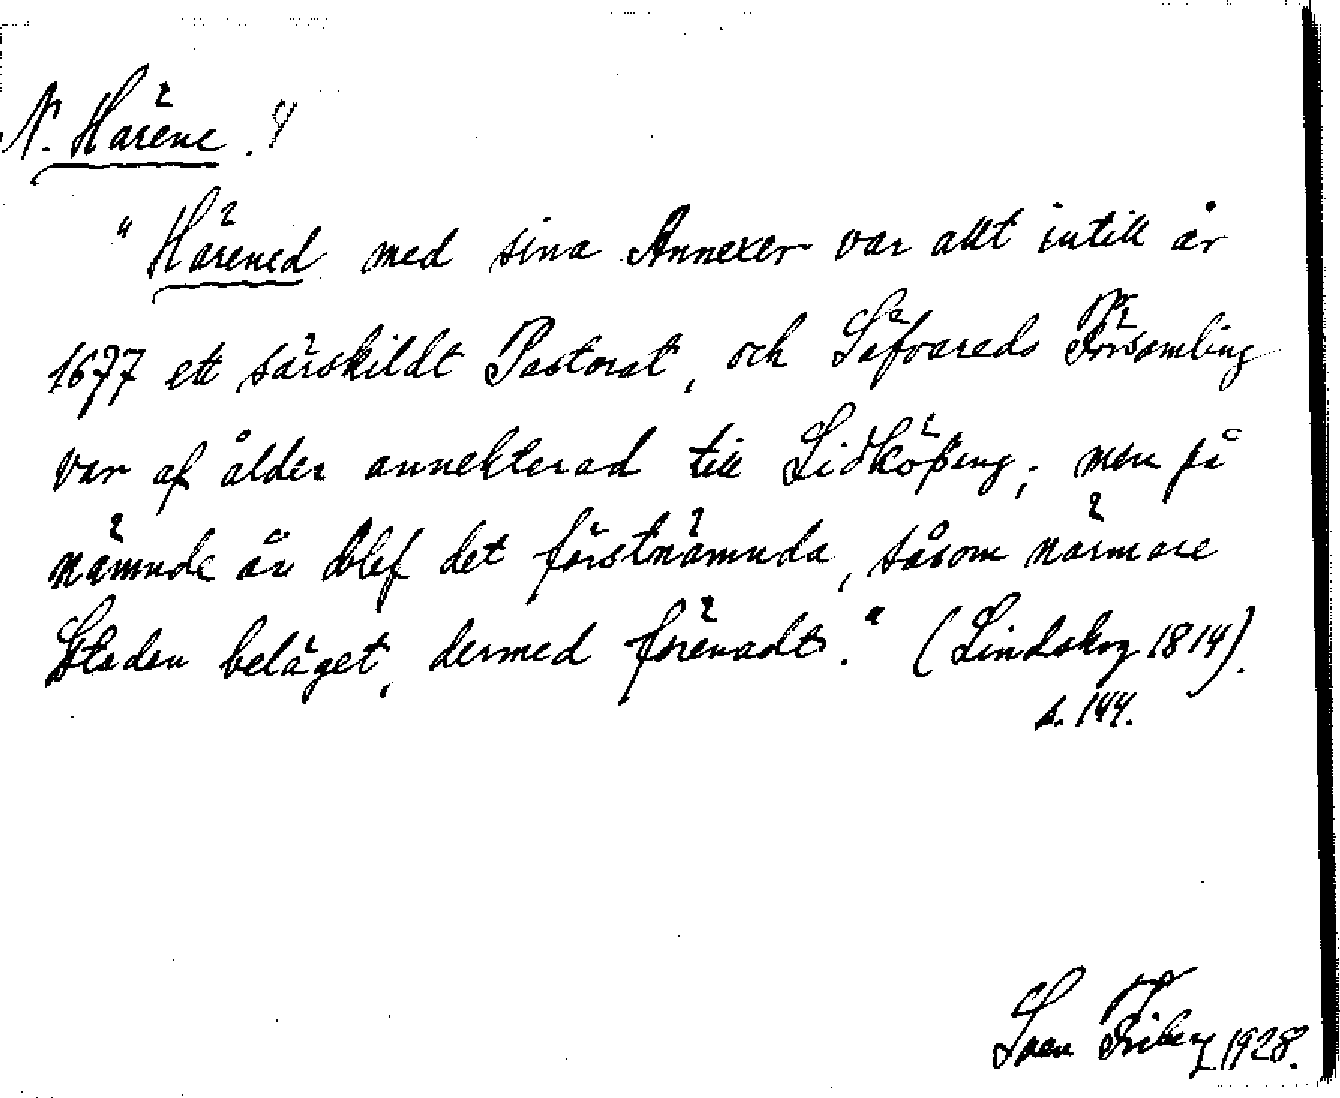 N. Härene. 4
"Härened med sina Annexer var allt intill år
1677 ett särskildt Pastorat, och Säfvareds Församling
var af ålder annekterad till Lidköping; men på
nämnde år blef det förstnämnda, såsom närmare
Staden beläget, dermed förenadt." (Lindskog 1814).
s. 144.
Sven Friberg 1928.